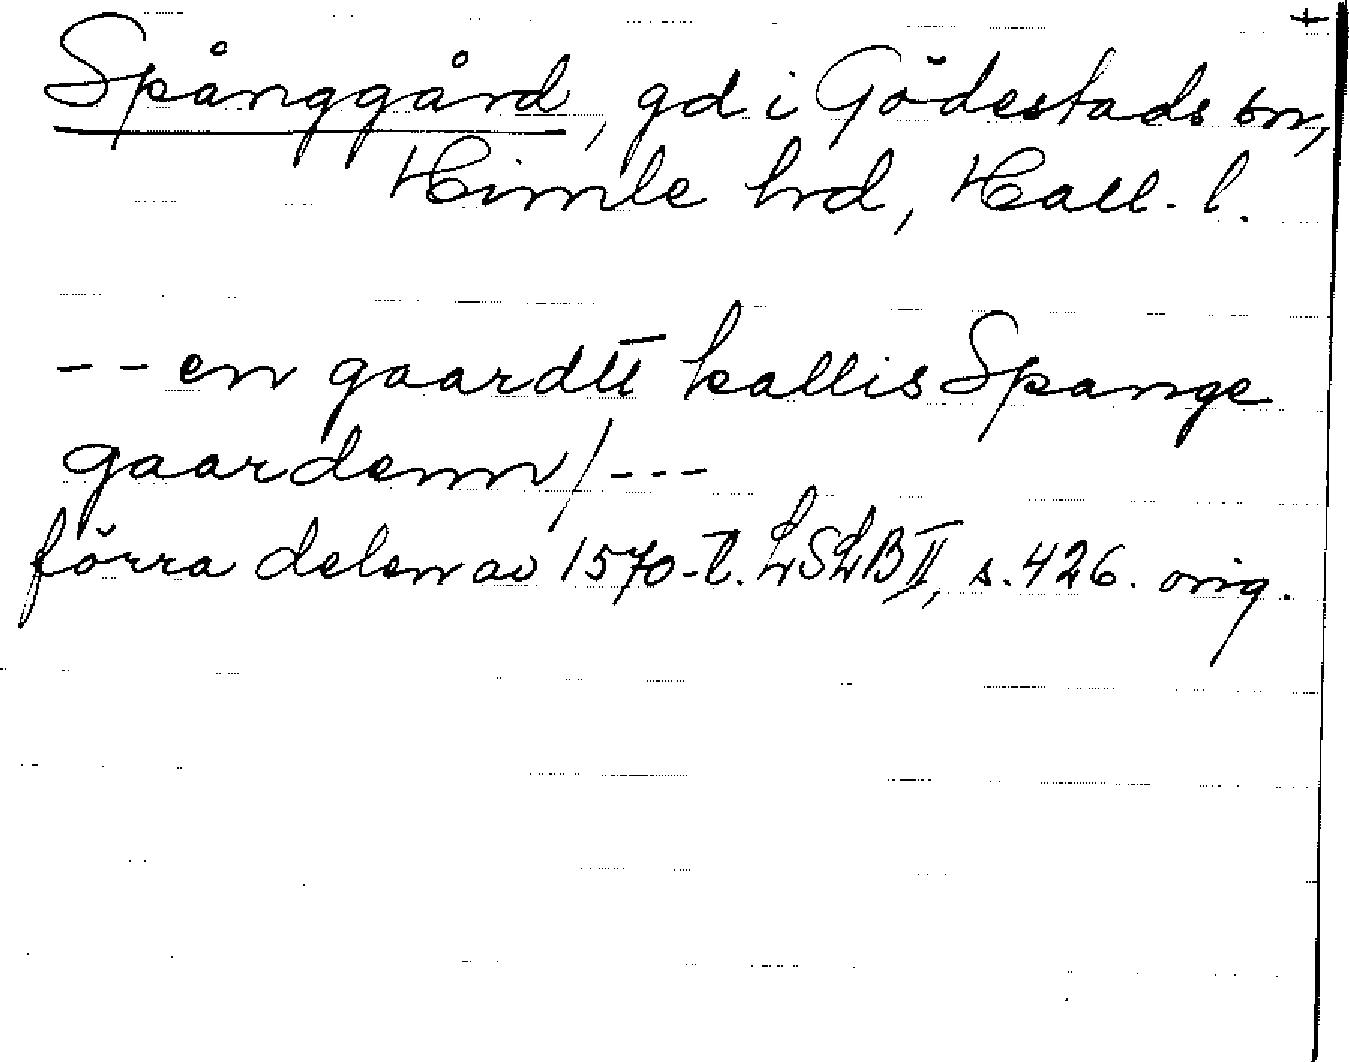 +
Spånggård, gd i Gödestads sn,
Himle hrd, Hall. l.
-- en gaardtt kallis Spange
gaardenn/---
förra delen av 1570-t. LSLB II, s. 426. orig.